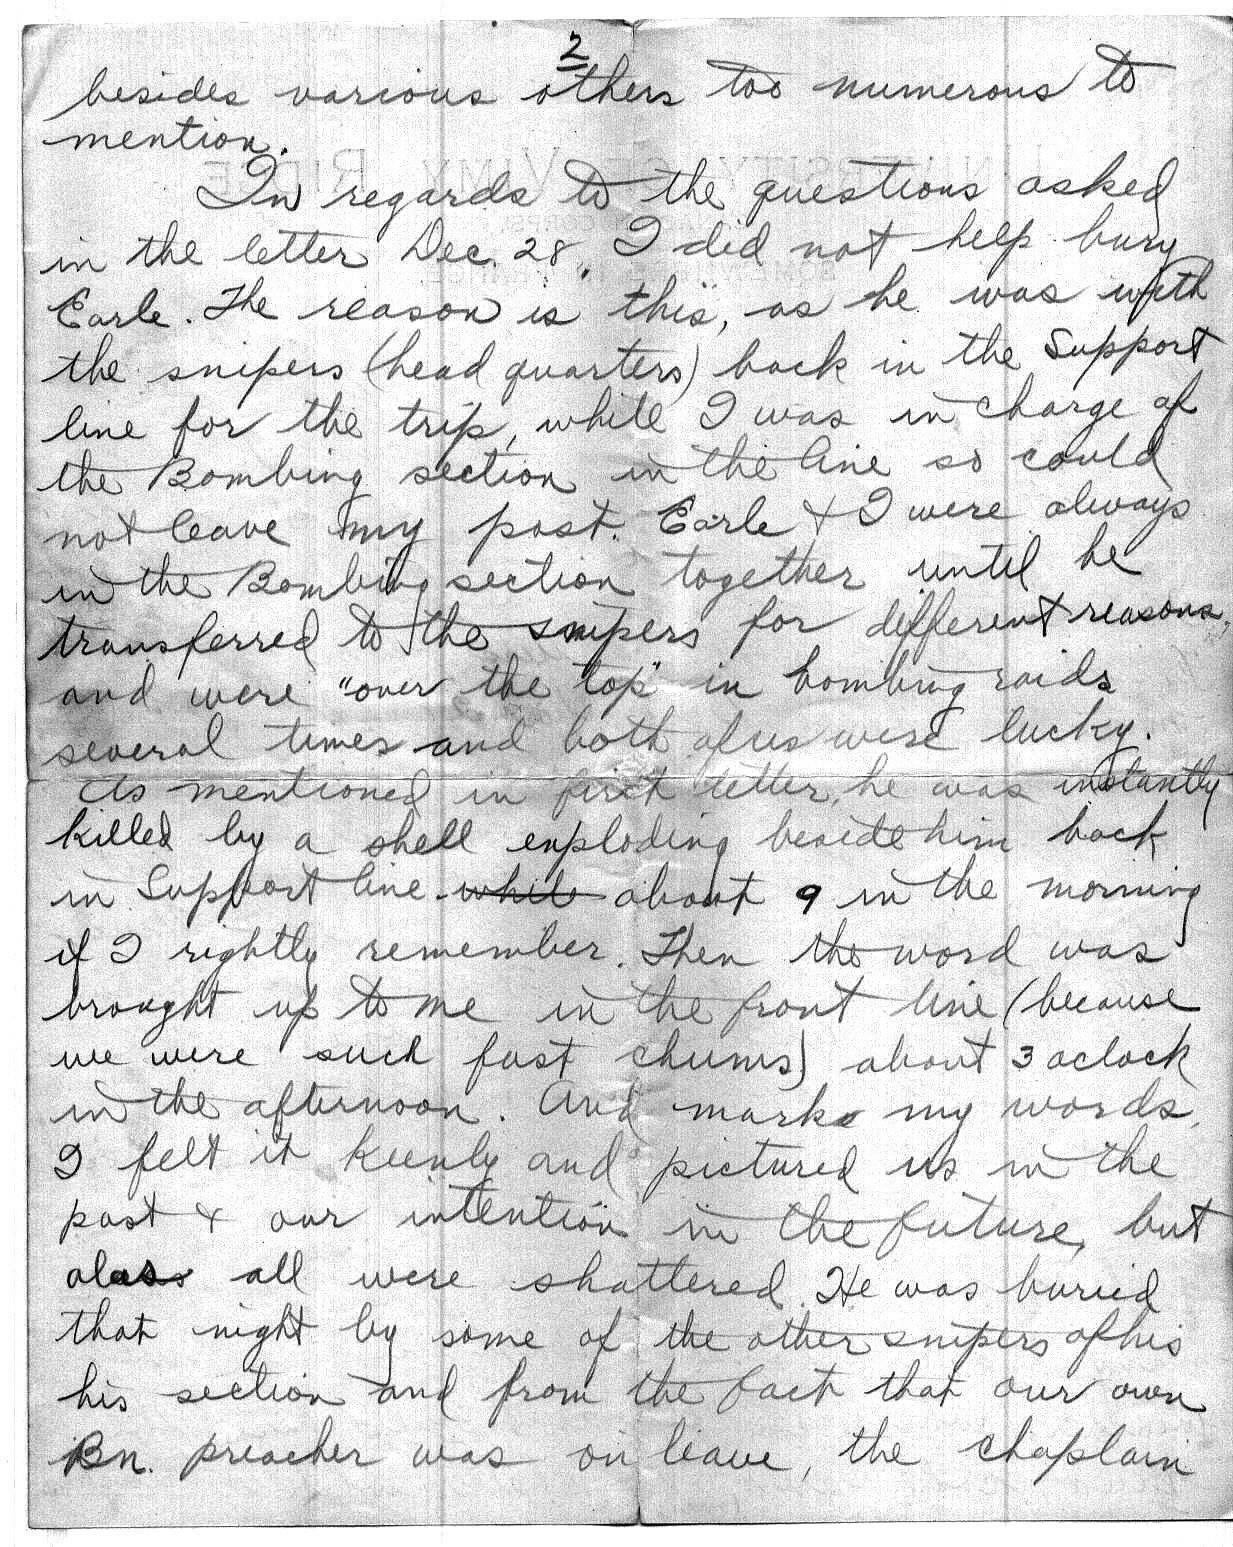 2
besides various others too numerous to
mention.
In regards to the questions asked
in the letter Dec. 28, I did not help bury
Earle. The reason is this, as he was with
the snipers (head quarters) back in the Support
line for the trip, while I was in charge of
the Bombing section in the line so could
not leave my post. Earle & I were always
in the Bombing section together until he
transferred to the snipers for different reasons,
and were "over the top" in bombing raids
several times and both of us were lucky.
As mentioned in first letter, he was instantly
killed by a shell exploding beside him back
in Support line while about 9 in the morning
if I rightly remember. Then the word was
brought up to me in the front line (because
we were such fast chums) about 3 oclock
in the afternoon. And mark my words,
I felt it keenly and pictured us in the
past & our intention in the future, but
alass all were shattered. He was buried
that night by some of the other snipers of his
his section and from the fact that our own
Bn. preacher was on leave, the chaplain
UNIVERSITY OF VIMY RIDGE